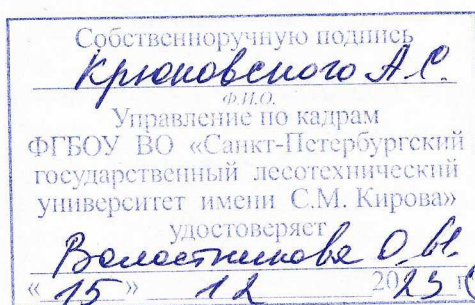 Собственноручную подпись
Крюковского А.С.
Ф.И.О.
Управление по кадрам
ФГБОУ ВО «Санкт-Петербургский
государственный лесотехнический
университет имени С.М. Кирова»
удостоверяет
О.И.
«15» 12 2023 г